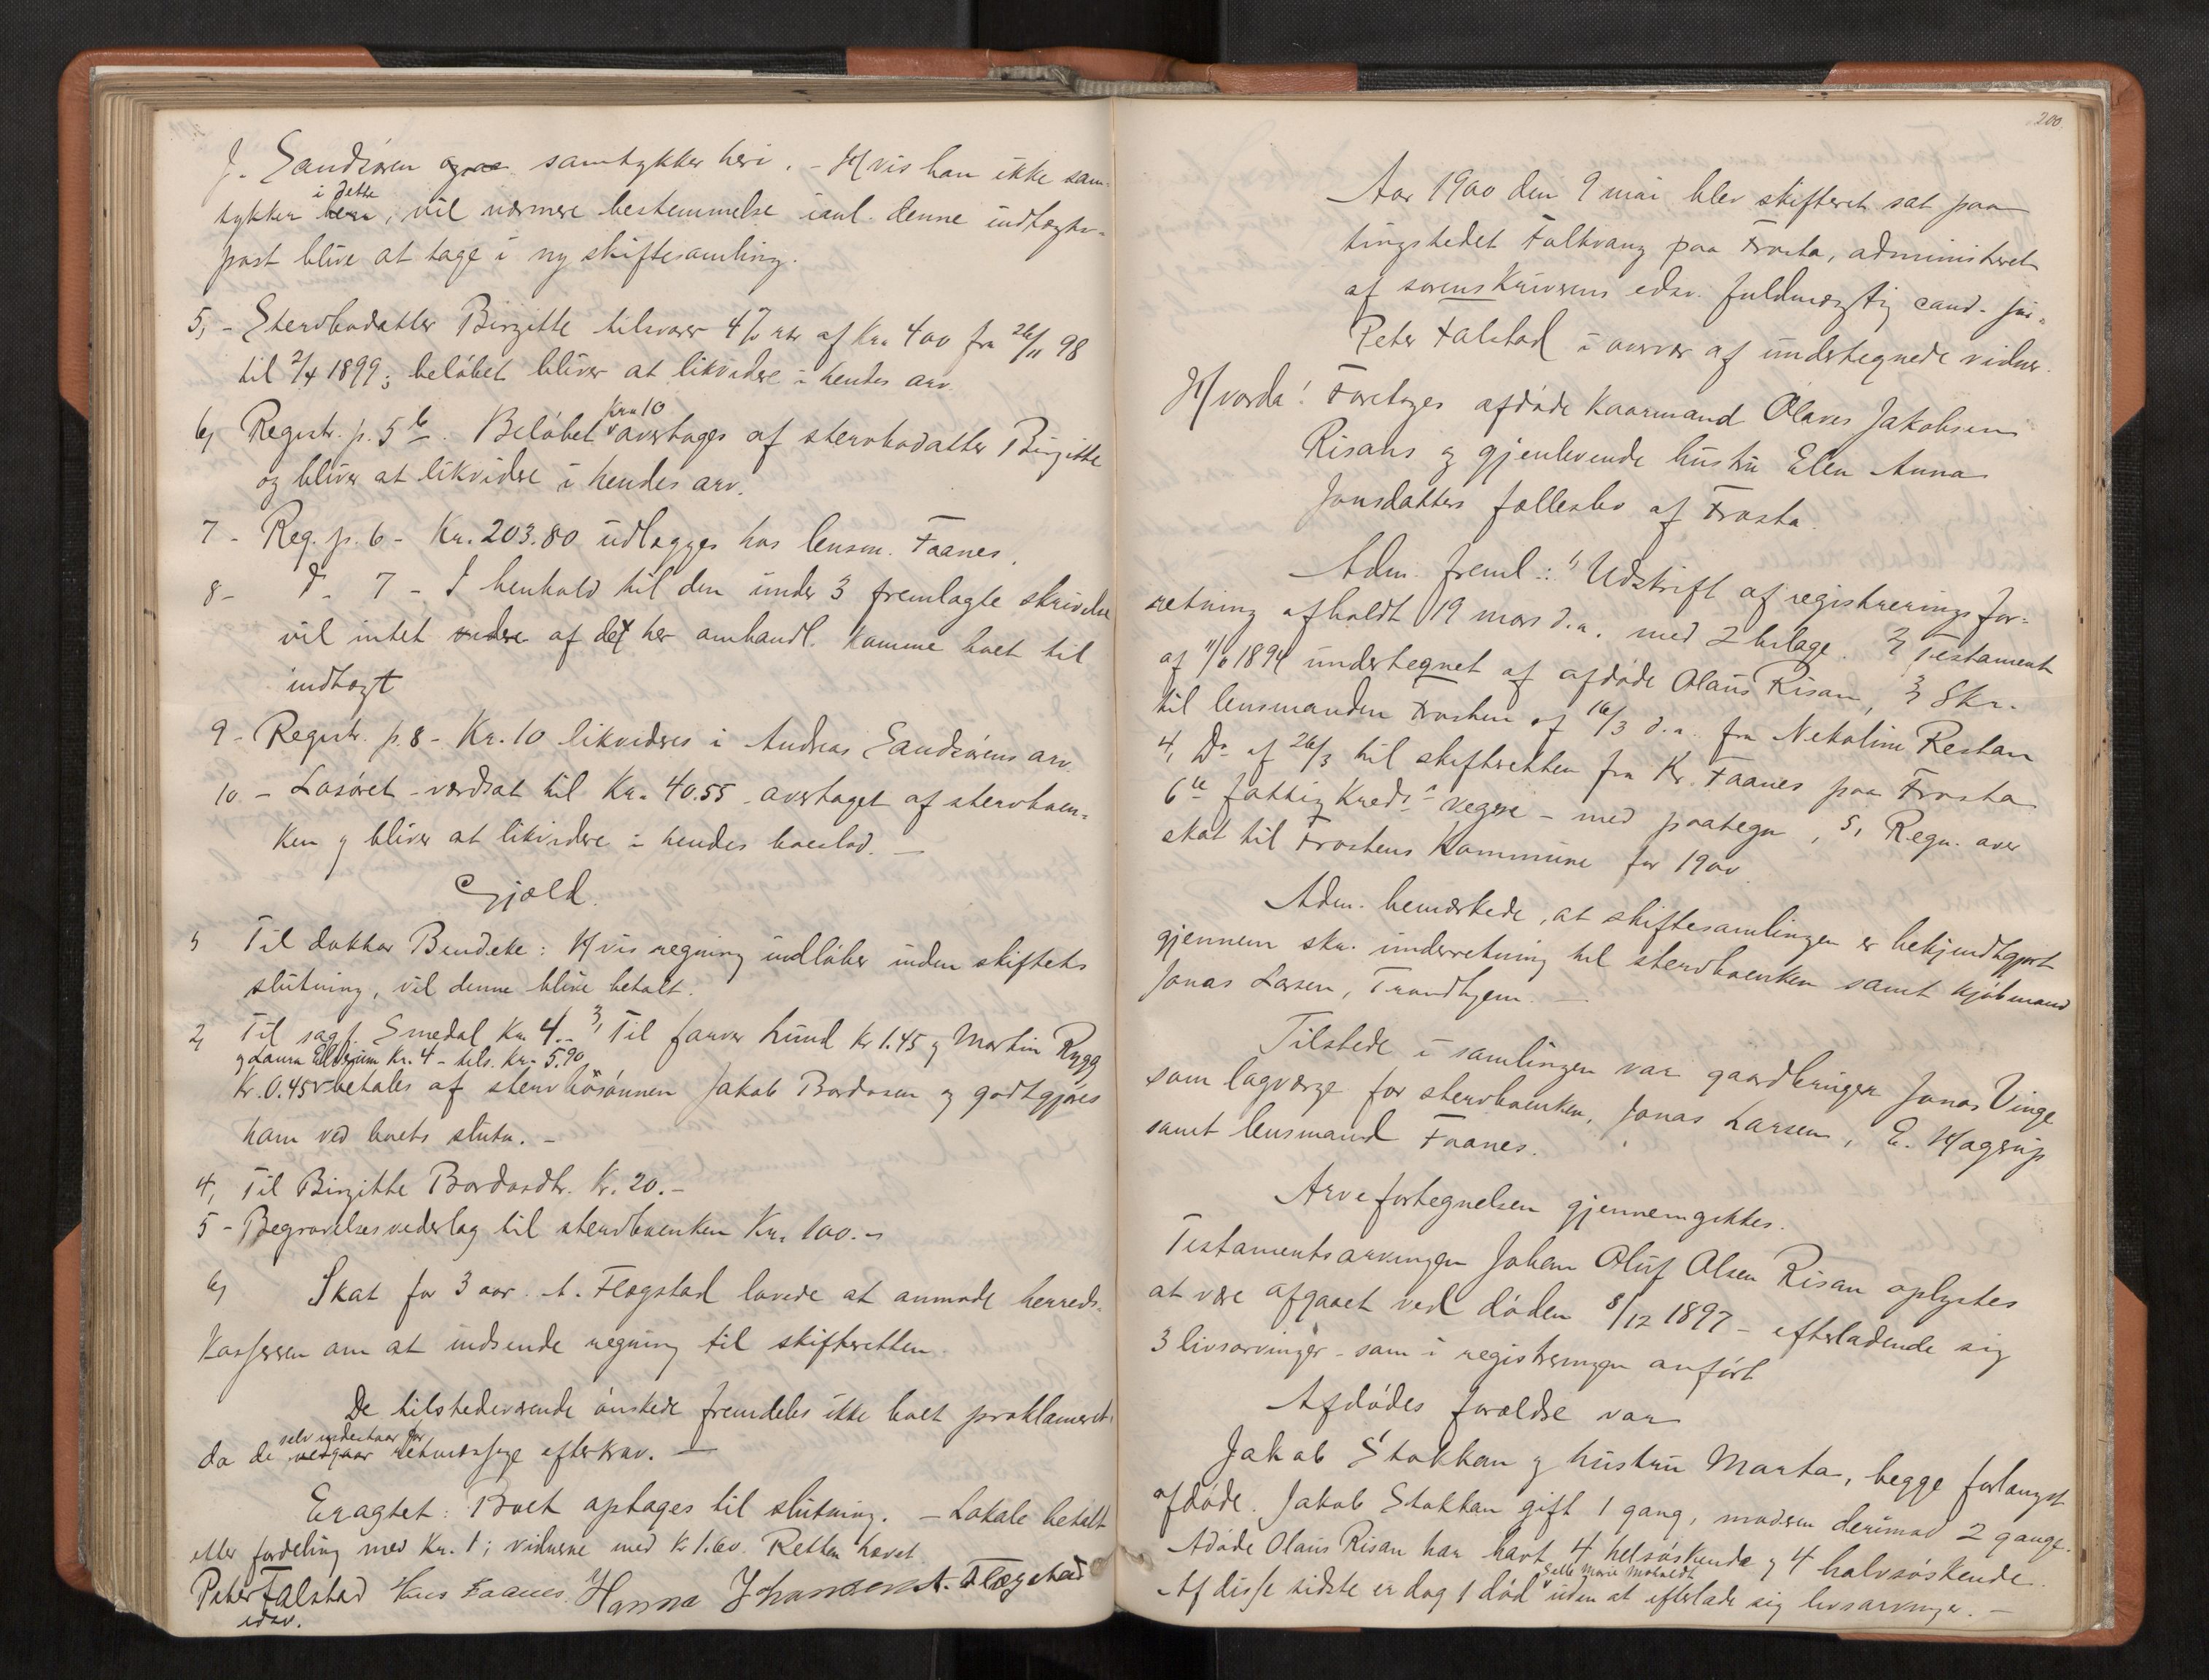 J. Sandsøren samtykker heri. - Hvis han ikke sam-
i dette
tykker heri, vil nærmere bestemmelse i anl. denne indtægts-
post blive at tage i ny skiftesamling.
5, - Stervbodatter Birgitte tilsvarer 4% rter af Kr. 400 fra 26/11 98
til 2/4 1899; beløbet bliver at likvidere i hendes arv.
Kr. 10
6, Registr. p. 5 b. Beløbet overtages af stervbodatter Birgitte
og bliver at likvidere i hendes arv.
7 - Reg. p. 6 - Kr. 203.80 udlægges hos lensm. Faanes.
8 - d. 7 - I henhold til den under 3 fremlagte skrivelse
vil intet videre af det her omhandl. komme boet til
indtægt
9 - Registr. p. 8 - Kr. 10 likvideres i Andreas Sandsørens arv.
10 - Løsøret - værdsat til Kr. 40.55 - overtaget af stervboen-
ken og bliver at likvidere i hendes boeslod. -
Gjæld.
1, Til doktor Bendeke: Hvis regning indløber inden skiftets
slutning, vil denne blive betalt.
2, Til sagf. Smedal Kr. 4.- 3, Til farver Lund Kr 1.45 og Martin Rygg
og Laura Kr. 4 - tils. Kr. 5.90
Kr. 0.45 betales af stervbosønnen Jakob Bardosen og godtgjøres
ham ved boets slutn. -
4, Til Birgitte Bardosdtr. Kr. 20.-
5 - Begravelsesvederlag til stervboenken Kr. 100.-
6, Skat for 3 aar. A. Flægstad lovede at anmode herreds-
kasseren om at indsende regning til skifteretten.
De tilstedeværende ønskede fremdeles ikke boet proklameret,
selv indestaar for
da de vedgaar retmæssige efterkrav. -
Eragtet: Boet optages til slutning. - Lokale betalt
efter fordeling med Kr. 1; vidnerne med Kr 1.60. Retten hævet.
Peter Falstad Hans Faanes. Hanna Johansen A. Flægstad
edsv.
200.
Aar 1900 den 9 mai blev skifteret sat paa
tingstedet Faltvang paa Frosta, administreret
af sorenskriverens edsv. fuldmægtig cand. jur.
Peter Falstad i overvær af undertegnede vidner.
Hvorda! Foretoges afdøde kaarmand Olaus Jakobsen
Risans og gjenlevende hustru Elen Anna
Jonsdatters fællesbo af Frosta.
Adm. freml.: 1, Udskrift af registreringsfor-
retning afholdt 19 mars d.a. med 2 bilage. 2, Testament
af 11/6 1894 undertegnet af afdøde Olaus Risan, 3, Skr.
til lensmanden Frosten af 16/3 d.a. fra Nekoline Restan
4, Do af 26/3 til skifteretten fra Kr. Faanes paa Frosta
6te fattigkreds's vegne - med paategn, 5, Regn. over
skat til Frostens kommune for 1900.
Adm. bemærkede, at skiftesamlingen er bekjendtgjort
gjennem skr. underretning til stervboenken samt kjøbmand
Jonas Larsen, Trondhjem. -
Tilstede i samlingen var gaardbruger Jonas Vinge
som lagværge for stervboenken, Jonas Larsen, E. Hagerup
samt lensmand Faanes.
Arvefortegnelsen gjennemgikkes.
Testamentsarvingen Johan Oluf Olsen Risan oplystes
at være afgaaet ved døden 8/12 1897 - efterladende sig
3 livsarvinger - som i registreringen anført
Afdødes forældre var
Jakob Stokkan og hustru Marta, begge forlængst
afdøde. Jakob Stokkan gift 1 gang, moderen derimod 2 gange.
Afdøde Olaus Risan har havt 4 helsøskende og 4 halvsøskende.
Marie
Af disse sidste er dog 1 død uden at efterlade sig livsarvinger. -